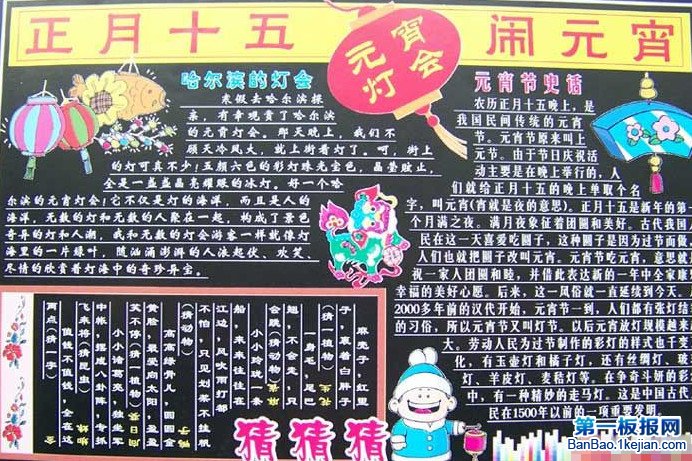 正月十五
元宵
灯会
闹元宵
哈尔滨的灯会
寒假去哈尔滨探
亲，有幸观赏了哈尔滨
的元宵灯会。那天晚上，我们不
顾天冷风大，就上街看灯了。呵，街上
的灯可真不少！五颜六色的彩灯珠光宝色，晶莹眩止，
全是一盏盏晶亮耀眼的冰灯。好一个哈
尔滨的元宵灯会！它不仅是灯的海洋，而且是人的
海洋，无数的灯和无数的人聚在一起，构成了景色
奇异的灯和人潮，我和无数的灯会游客一样就像灯
海里的一片绿叶，随汹涌澎湃的人浪起伏、欢笑、
尽情的欣赏着灯海中的奇珍异宝。
元宵节史话
农历正月十五晚上，是
我国民间传统的元宵
节。元宵节原来叫上
元节。由于节日庆祝活
动主要是在晚上举行的，人
们就给正月十五的晚上单取个名
字，叫元宵（宵就是夜的意思）。正月十五是新年的第一
个月满之夜。满月夜象征着团圆和美好。古代我国人
民在这一天喜爱吃圆子，这种子是因为过节而做，
人们也就把圆子改叫元宵。元宵节吃元宵，意思就是
祝一家人团圆和睦，并借此表达新的一年中全家康乐
幸福的美好心愿。后来，这一风俗就一直延续到今天。
2000多年前的汉代开始，元宵节一到，人们都有张灯结彩
的习俗，所以元宵节又叫灯节。以后元宵放灯规模越来越
大。劳动人民为过节制作的彩灯的样式也千变万
化，有玉壶灯和橘子灯，还有丝绸灯、玻
灯、羊皮灯、麦秸灯等。在争奇斗妍的彩
中，有一种精妙的走马灯。这是中国古代
民在1500年以前的一项重要发明。
麻壳子，红里
子，裹着白胖子
（猜一植物）
一身毛，尾巴
翘，不会走，只
会跳（猜动物）
小小玲珑一条
船，来来往往在
江边，风吹雨打都
不怕，只见划桨不挂帆
（猜动物）
高高绿骨儿，圆圆金
黄脸，最爱向太阳，盈盈
笑不停（猜一植物）
小小诸葛亮，独坐军
中帐，摆成八卦阵，专抓
飞来将（猜昆虫）
值钱不值钱，全在这
两点（猜一字）
猜猜猜
第一板报网
BanBao.1kejian.com